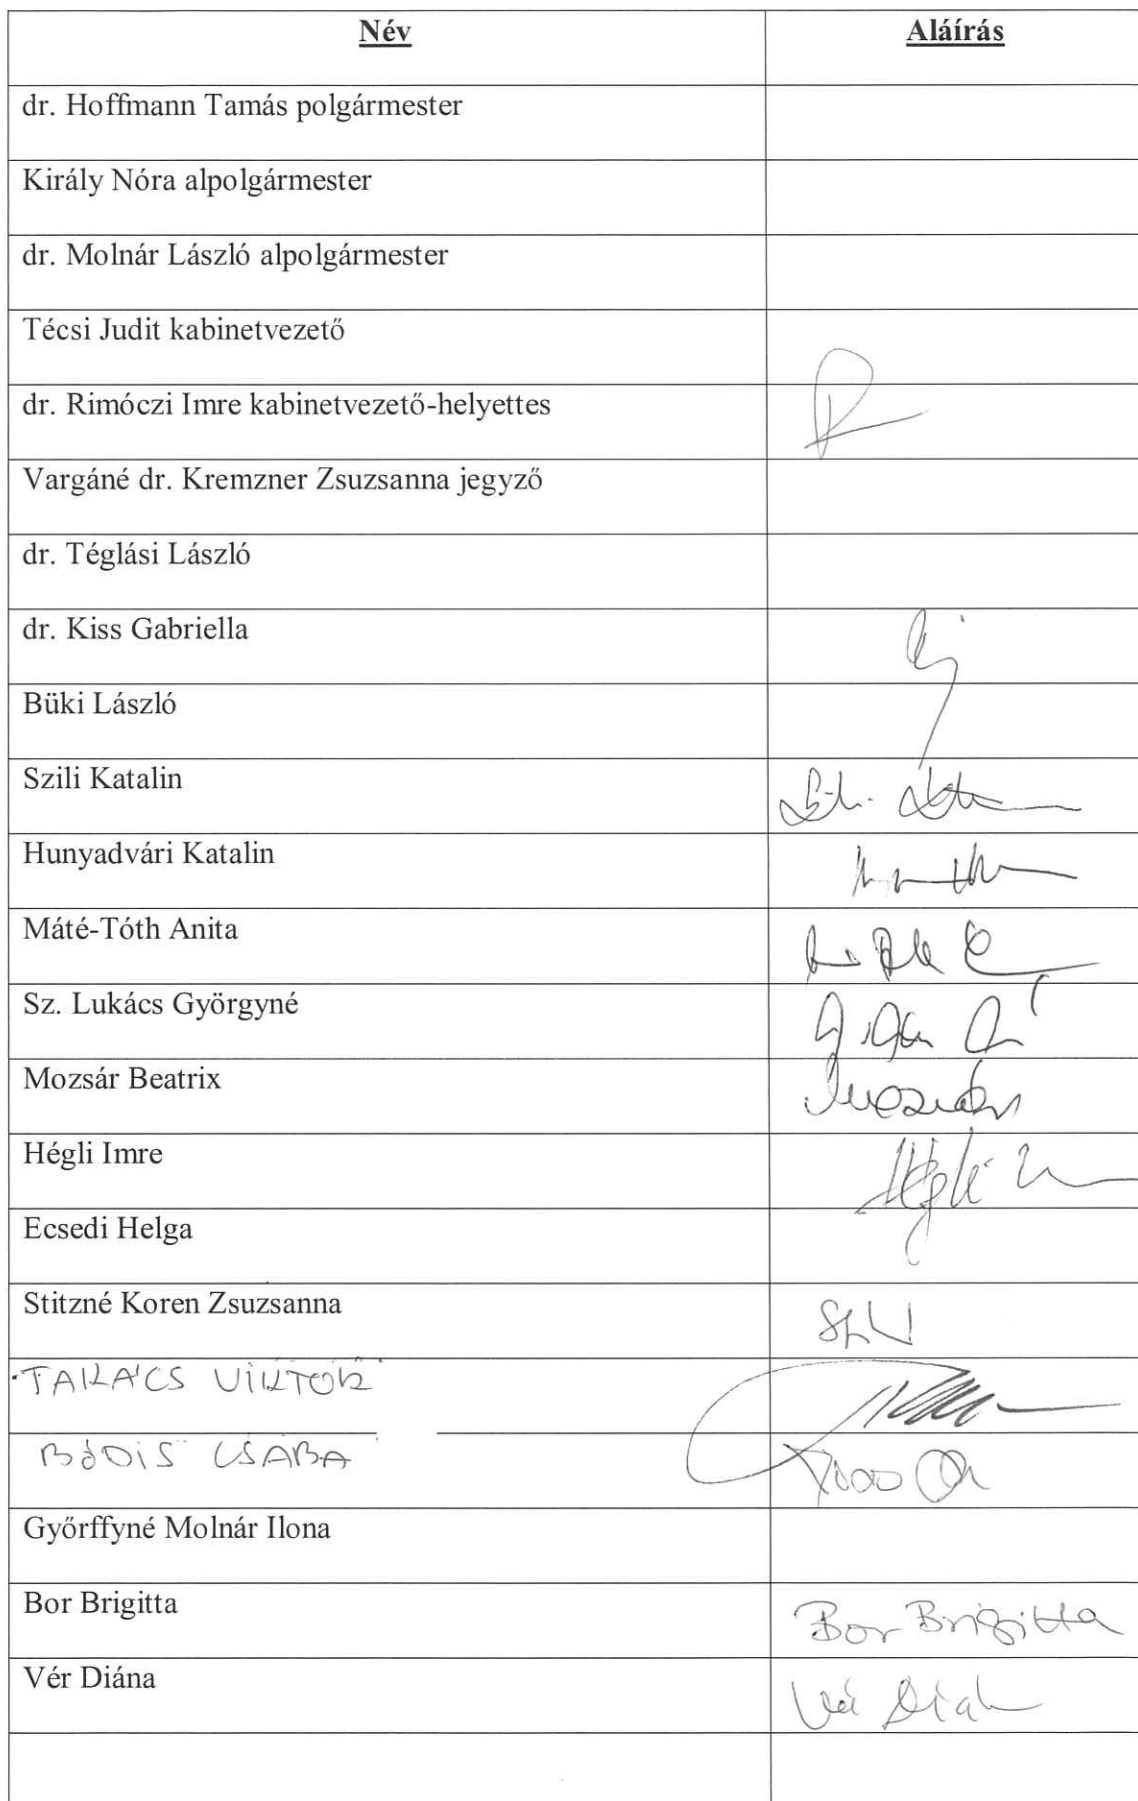 Név Aláírás
dr. Hoffmann Tamás polgármester
Király Nóra alpolgármester
dr. Molnár László alpolgármester
Técsi Judit kabinetvezető
dr. Rimóczi Imre kabinetvezető-helyettes
Vargáné dr. Kremzner Zsuzsanna jegyző
dr. Téglási László
dr. Kiss Gabriella
Büki László
Szili Katalin
Hunyadvári Katalin
Máté-Tóth Anita
Sz. Lukács Györgyné
Mozsár Beatrix
Hégli Imre
Ecsedi Helga
Stitzné Koren Zsuzsanna
TAKÁCS VIKTOR
BÓDIS CSABA
Győrffyné Molnár Ilona
Bor Brigitta Bor Brigitta
Vér Diána